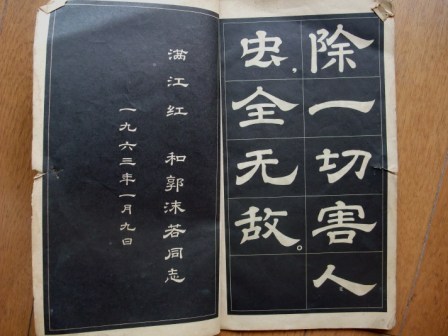 除一切害人
虫，全无敌。
满江红 和郭沫若同志
一九六三年一月九日